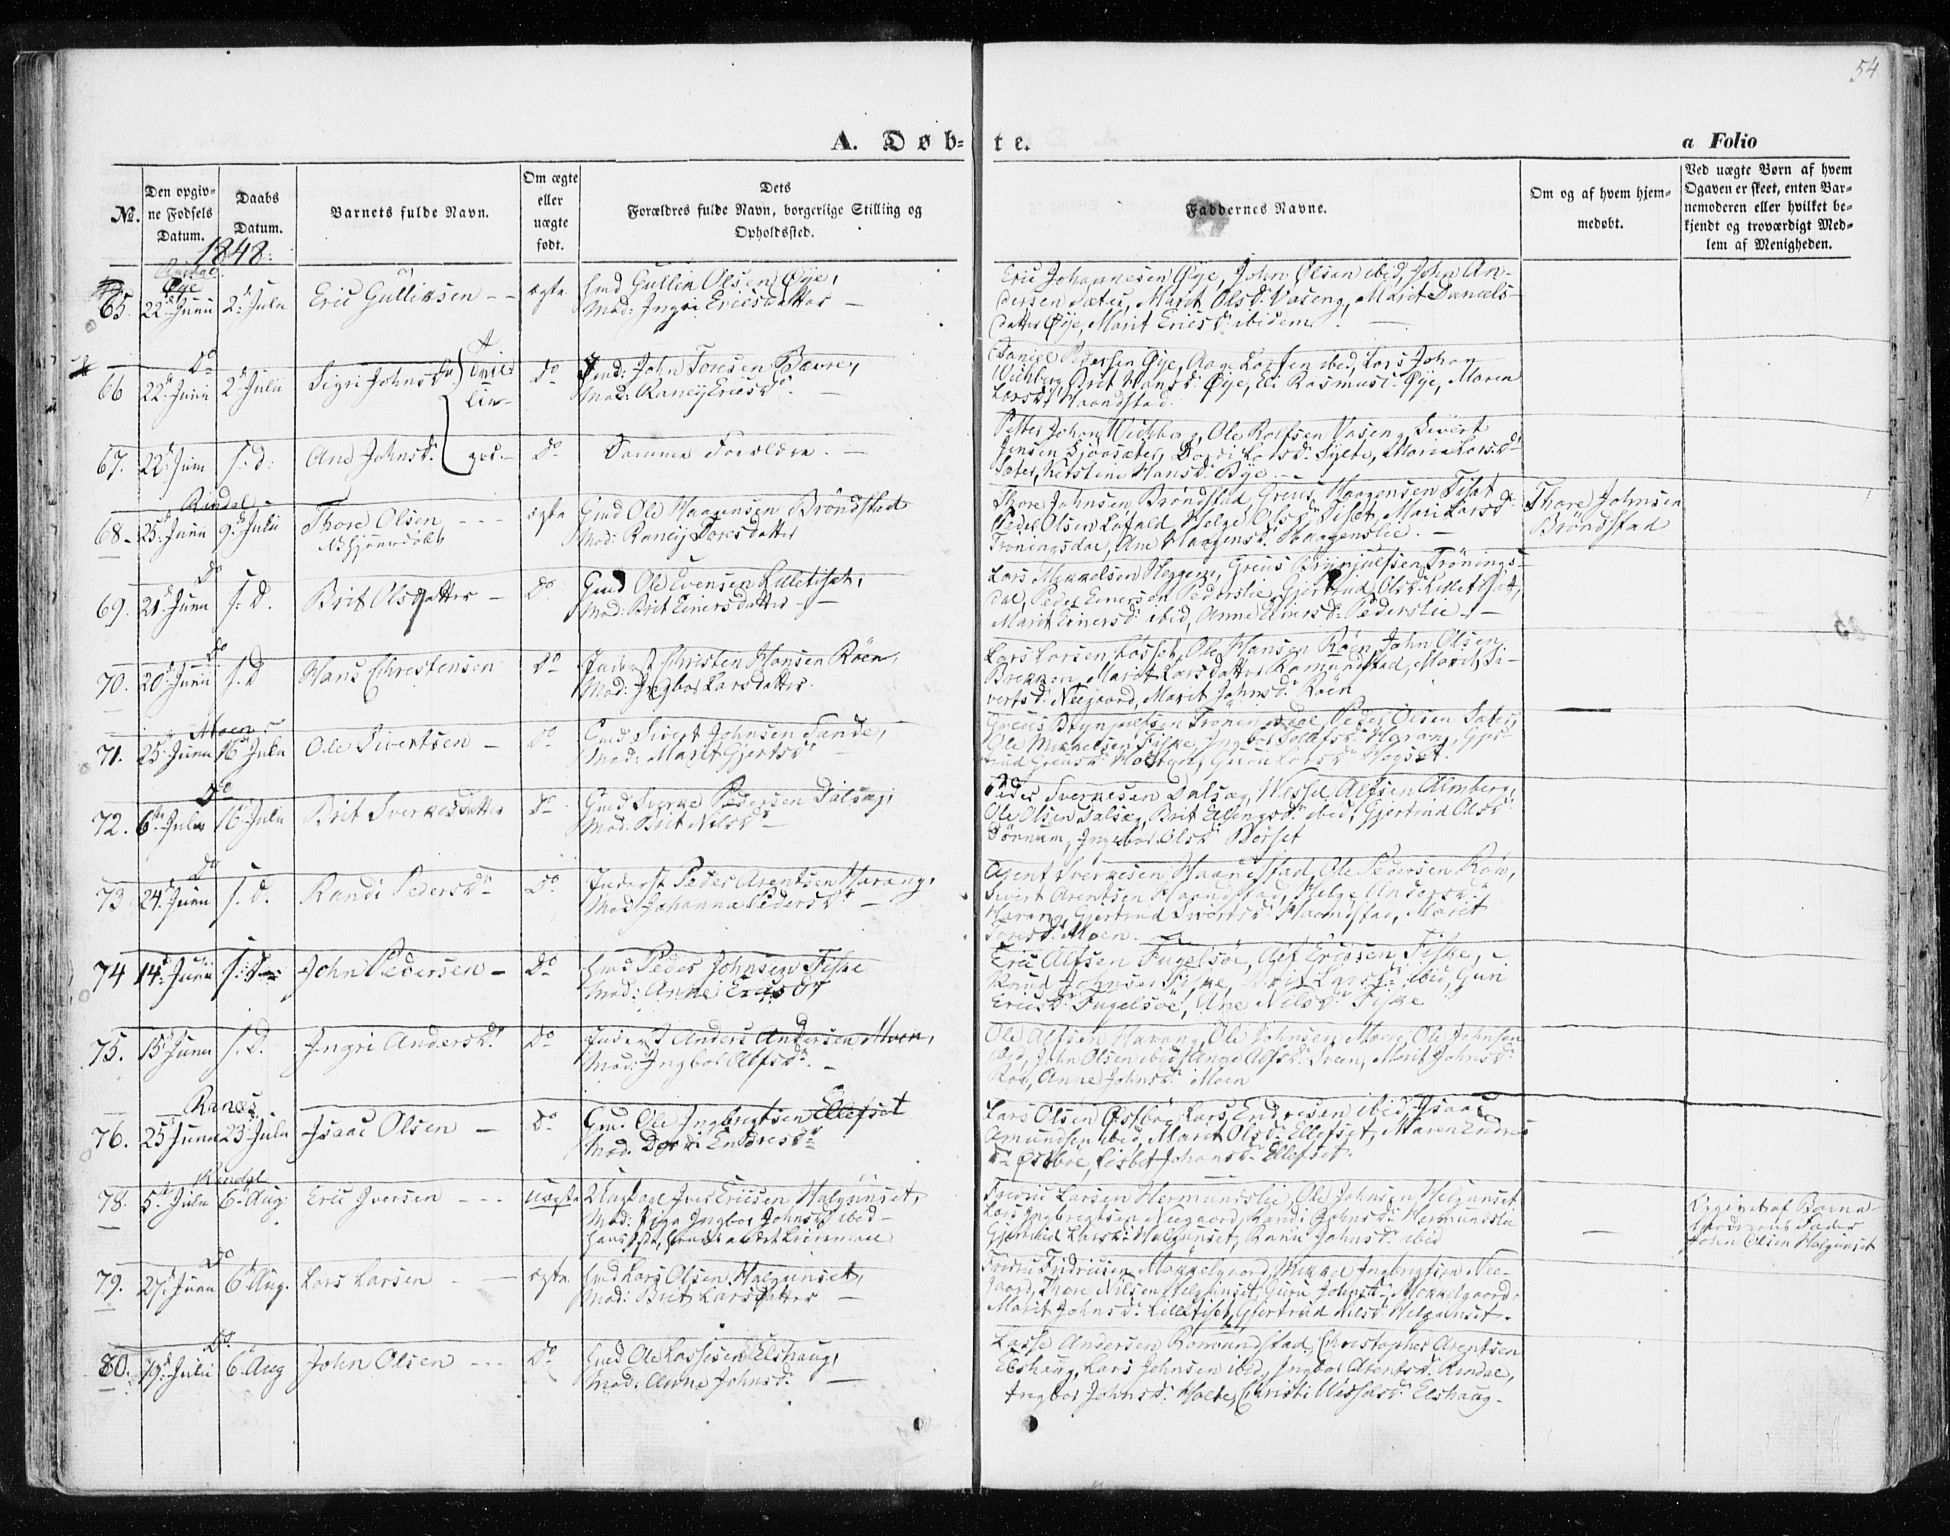 54
A. Døb-
te.
a Folio
No.
Den opgiv-
ne Fødsels
Datum.
Daabs
Datum.
Barnets fulde Navn.
Om ægte
eller
uægte
født.
Dets
Forældres fulde Navn, borgerlige Stilling og
Opholdssted.
Faddernes Navne.
Om og af hvem hjem-
medøbt.
Ved uægte Børn af hvem
Opgaven er skeet, enten Bar-
nemoderen eller hvilket be-
kjendt og troværdigt Med-
lem af Menigheden.
1848:
Øye
65. 22d Juni 2d Julu Eric Gulliksen - - ægte Gmd Gullik Olsen Øye,
Mod: Ingri Ericsdatter -
Eric Johannesen Øye, John Olsen ibid, John An-
dersen Sæter, Marit Olsd: Vaseng, Marit Daniels-
datter Øye, Marit Ericsd: ibidem. -
Do
66 22d Juni 2d Juli Sigri Johnsdr Tvil- Do John Toresen Bævre,
Mod: Raneÿ Ericsdr. -
lin-
Daniel Pedersen Øye, Aage Larsen ibid, Lars Johan
Wichberg, Brit Hansdr Øye, Eli Rasmusd: Øye, Maren
Larsdr Haandstad.
67. 22d Juni s. d: Ane Johnsdr. ger. - Do Samme Forældre. -
Petter Johan Wichberg, Ole Rolfsen Vaseng, Sivert
Jensen Siovsæter, Dordi Larsdr Sylte, Maria Larsdr
Sæter, Kirstine Hansdr Bye. -
Rindal
68- 25d Juni 9d Julii Thore Olsen - - - ægte Gmd Ole Haagensen Brøndstad
NB hjemmedøbt Mod: Raneÿ Toresdatter
Thore Johnsen Brøndstad, Greus Haagensen Tiset
Peder Olsen Løfald, Helge Olsdr Tiset, Mari Larsdr
Troningsdal, Ane Haagensd: Haagenslie. -
Thore Johnsen
Brøndstad
Do
69. 21d Juni s. d. Brit Olsdatter - Do Gmd Ole Evensen Lilletiset,
Mod: Brit Einersdatter -
Lars Mikkelsen Heggem, Greus Brynjulfsen Trönings-
dal, Peder Einersen Pederslie, Gjertrud Olsdr Lilletiset,
Marit Einersd: ibid, Anne Einersd: Pederslie. -
Do
70. 20d Junii s. d Hans Christensen Do Inderst Christen Hansen Röen,
Mod: Ingbor Larsdatter.
Lars Larsen Løset, Ole Hansen Röen, John Olsen
Brekken, Marit Larsdatter Romundstad, Marit Si-
vertsd: Neegaard, Marit Johnsd: Röen
Moen
71. 25d Juni 16d Julu Ole Sivertsen - Do Gmd Sivert Johnsen Sande,
Mod: Marit Gjertsdr -
Greus Brynjulfsen Troningsdal, Peder Olsen Sæter,
Ole Mikkelsen Fiske, Ingbor Harang, Gjer-
trud Greusd: Holten, Guru Larsdr Høgset.
Do
72. 6te Julu 16d Julu Brit Sverkesdatter Do Gmd Sverke Pedersen Dalsæg,
Mod. Brit Nilsdr -
Peder Sverkesen Dalsæg, Wessel Alfsen Almberg,
Ole Olsen Dalsæg, Brit Ellingsdr ibid, Gjertrud Olsdr
Törnum, Ingebor Olsdr Børset
Do
73 24d Juni s. d. Randi Pedersdr Do. Inderst Peder Arentsen Harang,
Mod: Johanna Pedersdr -
Arent Sverkesen Haandstad, Ole Pedersen Röv,
Sivert Arentsen Haandstad, Helge Andersdr
Harang, Gjertrud Sivertsdr Haandstad, Marit
Toresdr Moen.
74 14d Junii s: d: John Pedersen - Do Gmd Peder Johnsen Fiske
Mod: Anne Ericsdr
Eric Alfsen Fugelsöe, Alf Ericsen Fiske, -
Knud Johnsen Fiske, Brit Larsdr ibid, Guri
Ericsdr Fugelsöe, Ane Nilsdr Fiske
75. 15d Juni s. d. Ingri Andersdr. Do Inderst Anders Andersen Moen,
Mod: Ingbor Alfsdr. -
Ole Alfsen Harang, Ole Johnsen Moen, Ole Johnsen
Röv, John Olsen ibid, Ange Alfsdr Sveen, Marit Johnsdr
Röv, Anne Johnsdr Moen
Ranæs
76. 25d Juni 23d Julu Isaac Olsen - Do Gmd Ole Ingbregtsen Ellefset
Mod. Dordi Endresdr
Lars Olsen Østböe, Lars Endresen ibid, Isaac
Amundsen ibid, Marit Olsdr Ellefset, Maren Endres
dr Østböe, Lisbet Johansdr Ellefset.
Rindal
78. 5te Julu 6d Aug: Eric Iversen - - - uægte Ungkarl Iver Ericsen Halgunset,
Mod: Pige Ingbor Johnsdr ibid -
Fredric Larsen Hermundslie, Ole Johnsen Helgunset,
Lars Ingbregtsen Neegaard, Randi Johnsdr Hermundslie
Gjertrud Larsdr Halgunset, Rani Johnsdr ibid
-
Opgivet af Barne-
moderens Fader
John Olsen Halgunset
Do
79. 27d Juni 6d Aug. Lars Larsen - - ægte. Gmd Lars Olsen Halgunset,
Mod: Brit Larsdatter -
Fredric Fredricsen Mokkelgaard, Mikkel Ingbregtsen Nee-
gaard, Thore Nilsen Helgunset, Guru Johnsd: Mokkelgaard,
Marit Johnsdr Lilletiset, Gjertrud Nilsdr Helgunset. -
Do.
80. 19d Julii 6d Aug John Olsen - - - Do Gmd Ole Lassesen Elshaug,
Mod: Anne Johnsdr. -
Lasse Andersen Romundstad, Christopher Arentsen
Elshaug, Lars Johnsen ibid, Ingbor Arentsdr Rindal,
Ingbor Johnsdr Holte, Christi Elshaug. -